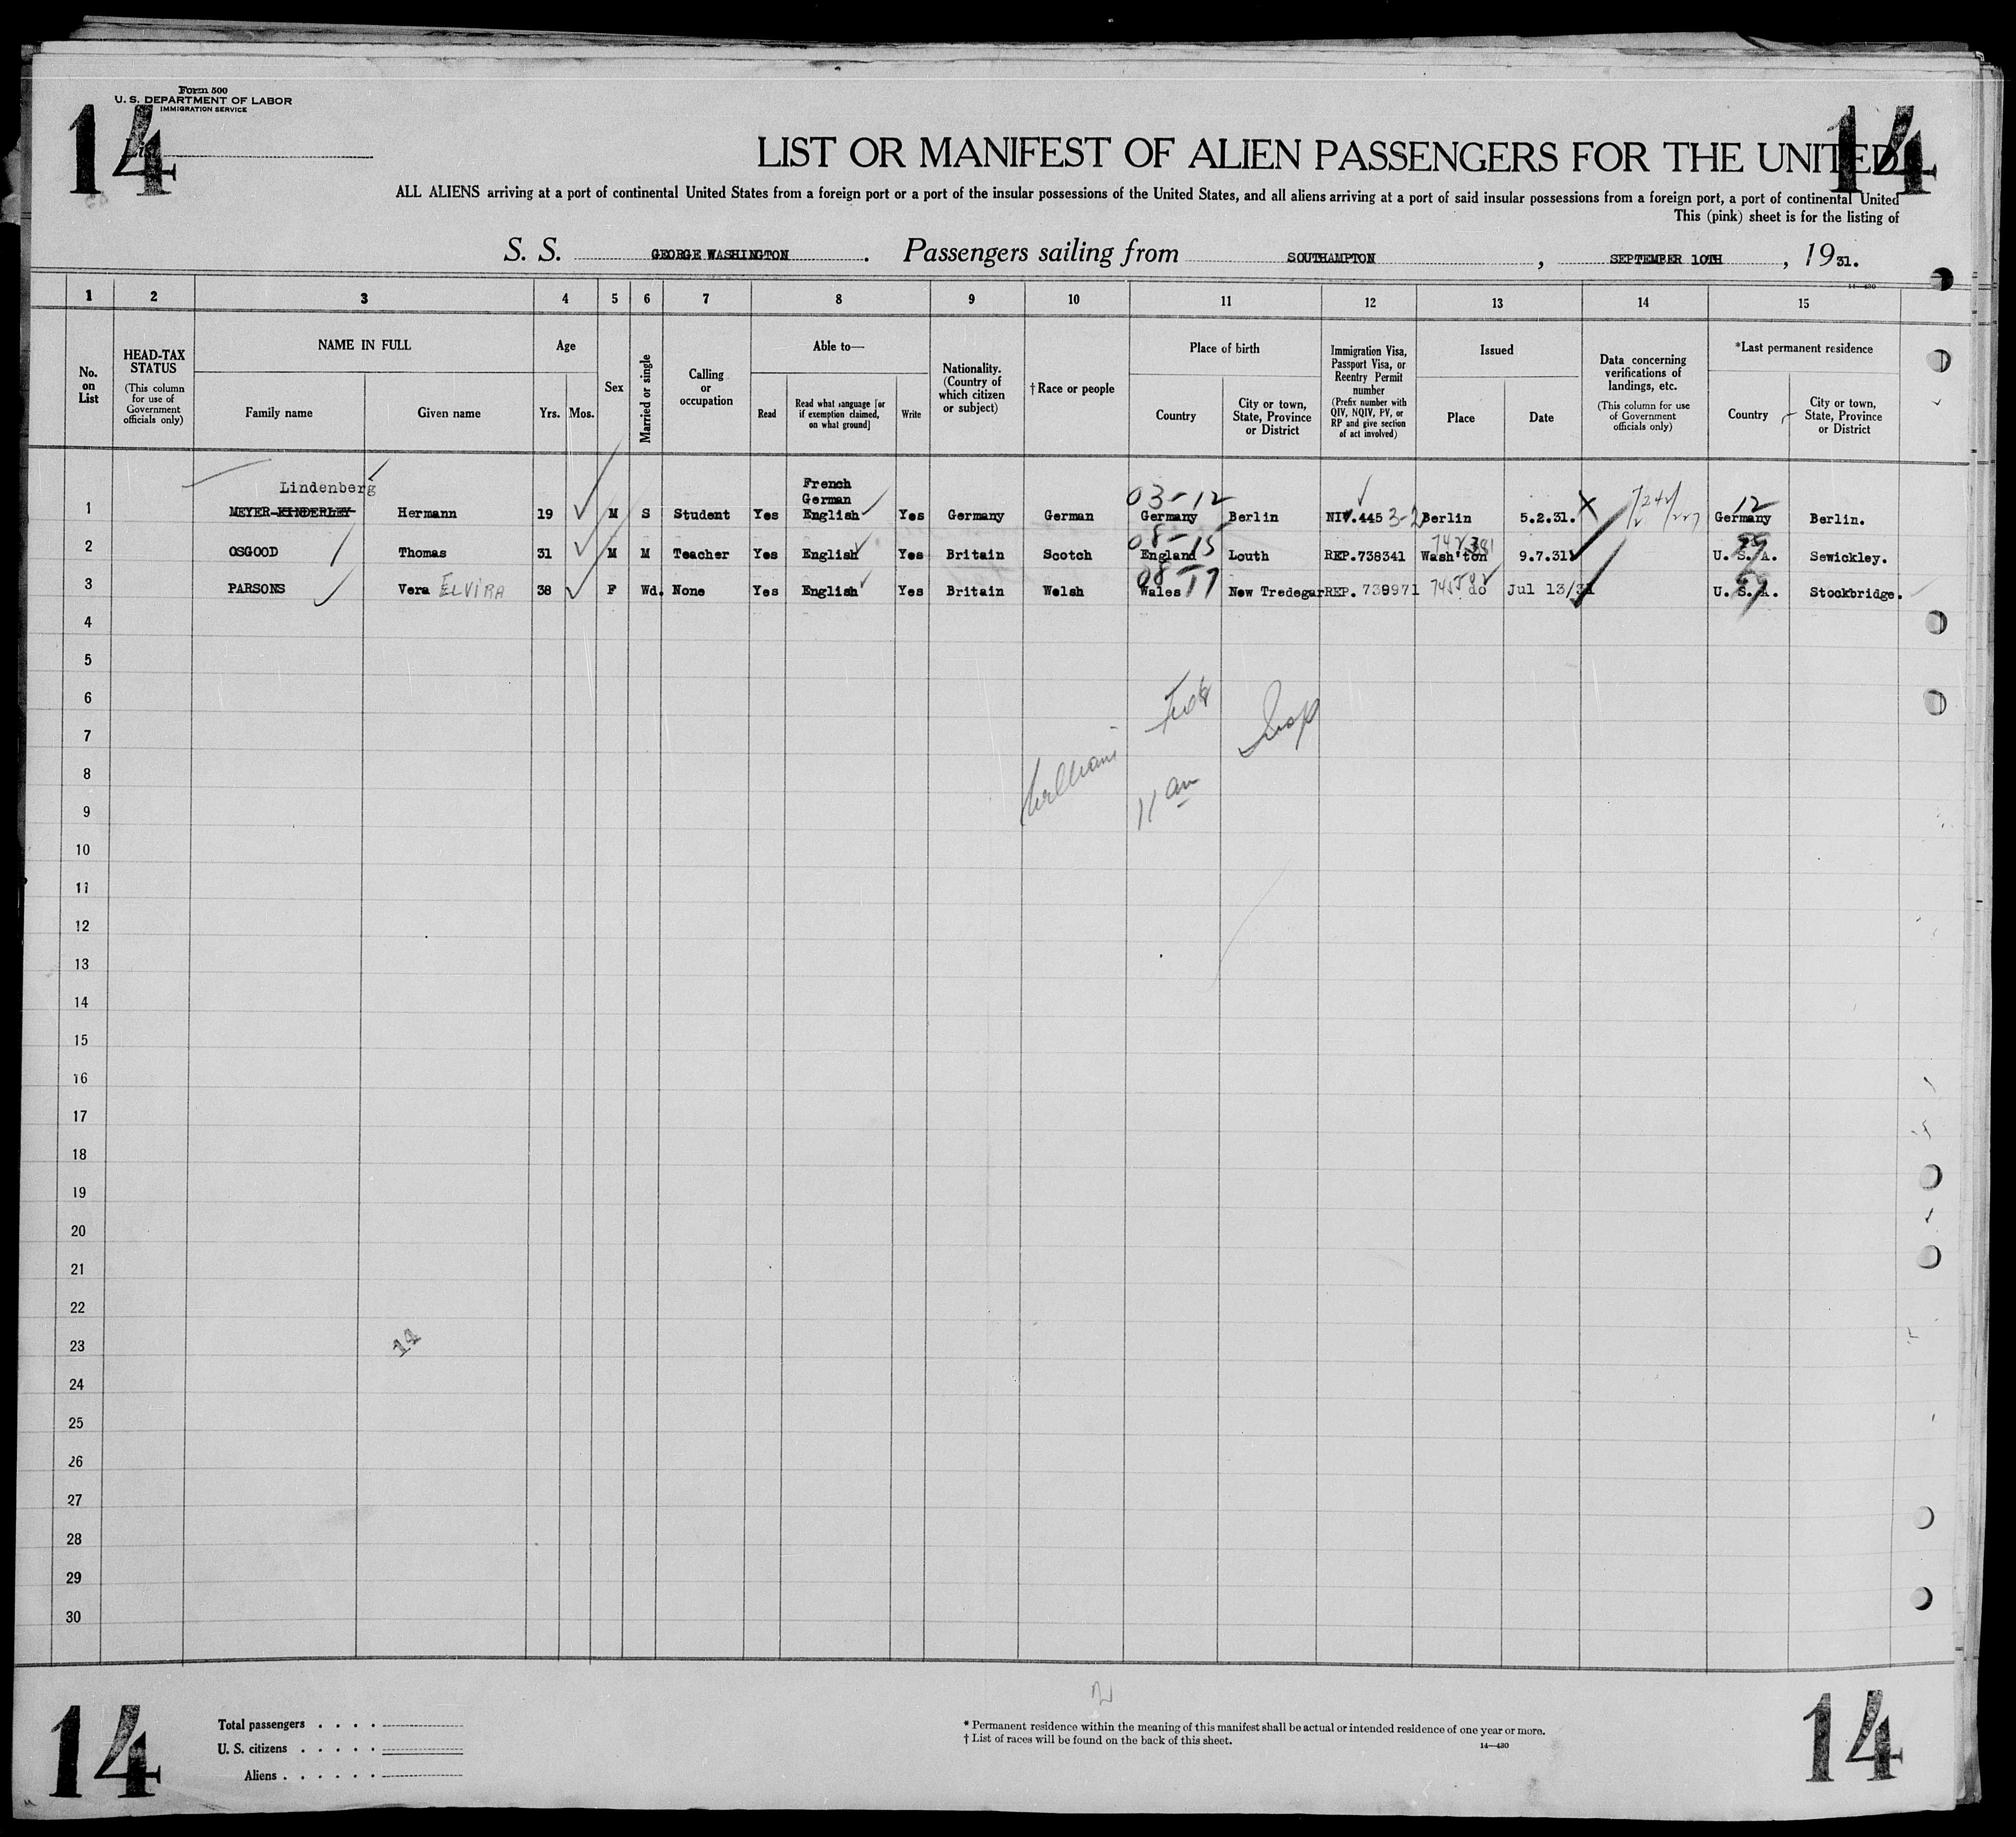 Form 500
U. S. DEPARTMENT OF LABOR
IMMIGRATION SERVICE
14
14
List
LIST OR MANIFEST OF ALIEN PASSENGERS FOR THE UNITED
ALL ALIENS arriving at a port of continental United States from a foreign port or a port of the insular possessions of the United States, and all aliens arriving at a port of said insular possessions from a foreign port, a port of continental United
This (pink) sheet is for the listing of
S. S. GEORGE WASHINGTON. Passengers sailing from SOUTHAMPTON, SEPTEMBER 10TH, 1931.
14—430
1 2 3 4 5 6 7 8 9 10 11 12 13 14 15
No. on List
HEAD-TAX STATUS (This column for use of Government officials only)
NAME IN FULL
Family name
Given name
Age
Yrs.
Mos.
Sex
Married or single
Calling or occupation
Able to—
Read
Read what language [or if exemption claimed, on what ground]
Write
Nationality. (Country of which citizen or subject)
† Race or people
Place of birth
Country
City or town, State, Province or District
Immigration Visa, Passport Visa, or Reentry Permit number (Prefix number with QIV, NQIV, PV, or RP and give section of act involved)
Issued
Place
Date
Data concerning verifications of landings, etc. (This column for use of Government officials only)
*Last permanent residence
Country
City or town, State, Province or District
Lindenberg French
German 03-12 12
1 MEYER-KINDERLEY Hermann 19 M S Student Yes English Yes Germany German Germany Berlin NIV.445 3-2 Berlin 5.2.31. X Germany Berlin.
08-15
2 OSGOOD Thomas 31 M M Teacher Yes English Yes Britain Scotch England Louth REP.738341 Wash'ton 9.7.31 U. S. A. Sewickley.
08 17
3 PARSONS Vera ELVIRA 38 F Wd. None Yes English Yes Britain Welsh Wales New Tredegar REP. 739971 do Jul 13/31 U. S. A. Stockbridge.
4
5
6
7
8
9
11 am
10
11
12
13
14
15
16
17
18
19
20
21
22
23
14
24
25
26
27
28
29
30
14
Total passengers . . . .
U. S. citizens . . . . .
Aliens . . . . . .
* Permanent residence within the meaning of this manifest shall be actual or intended residence of one year or more.
† List of races will be found on the back of this sheet.
14—430
14